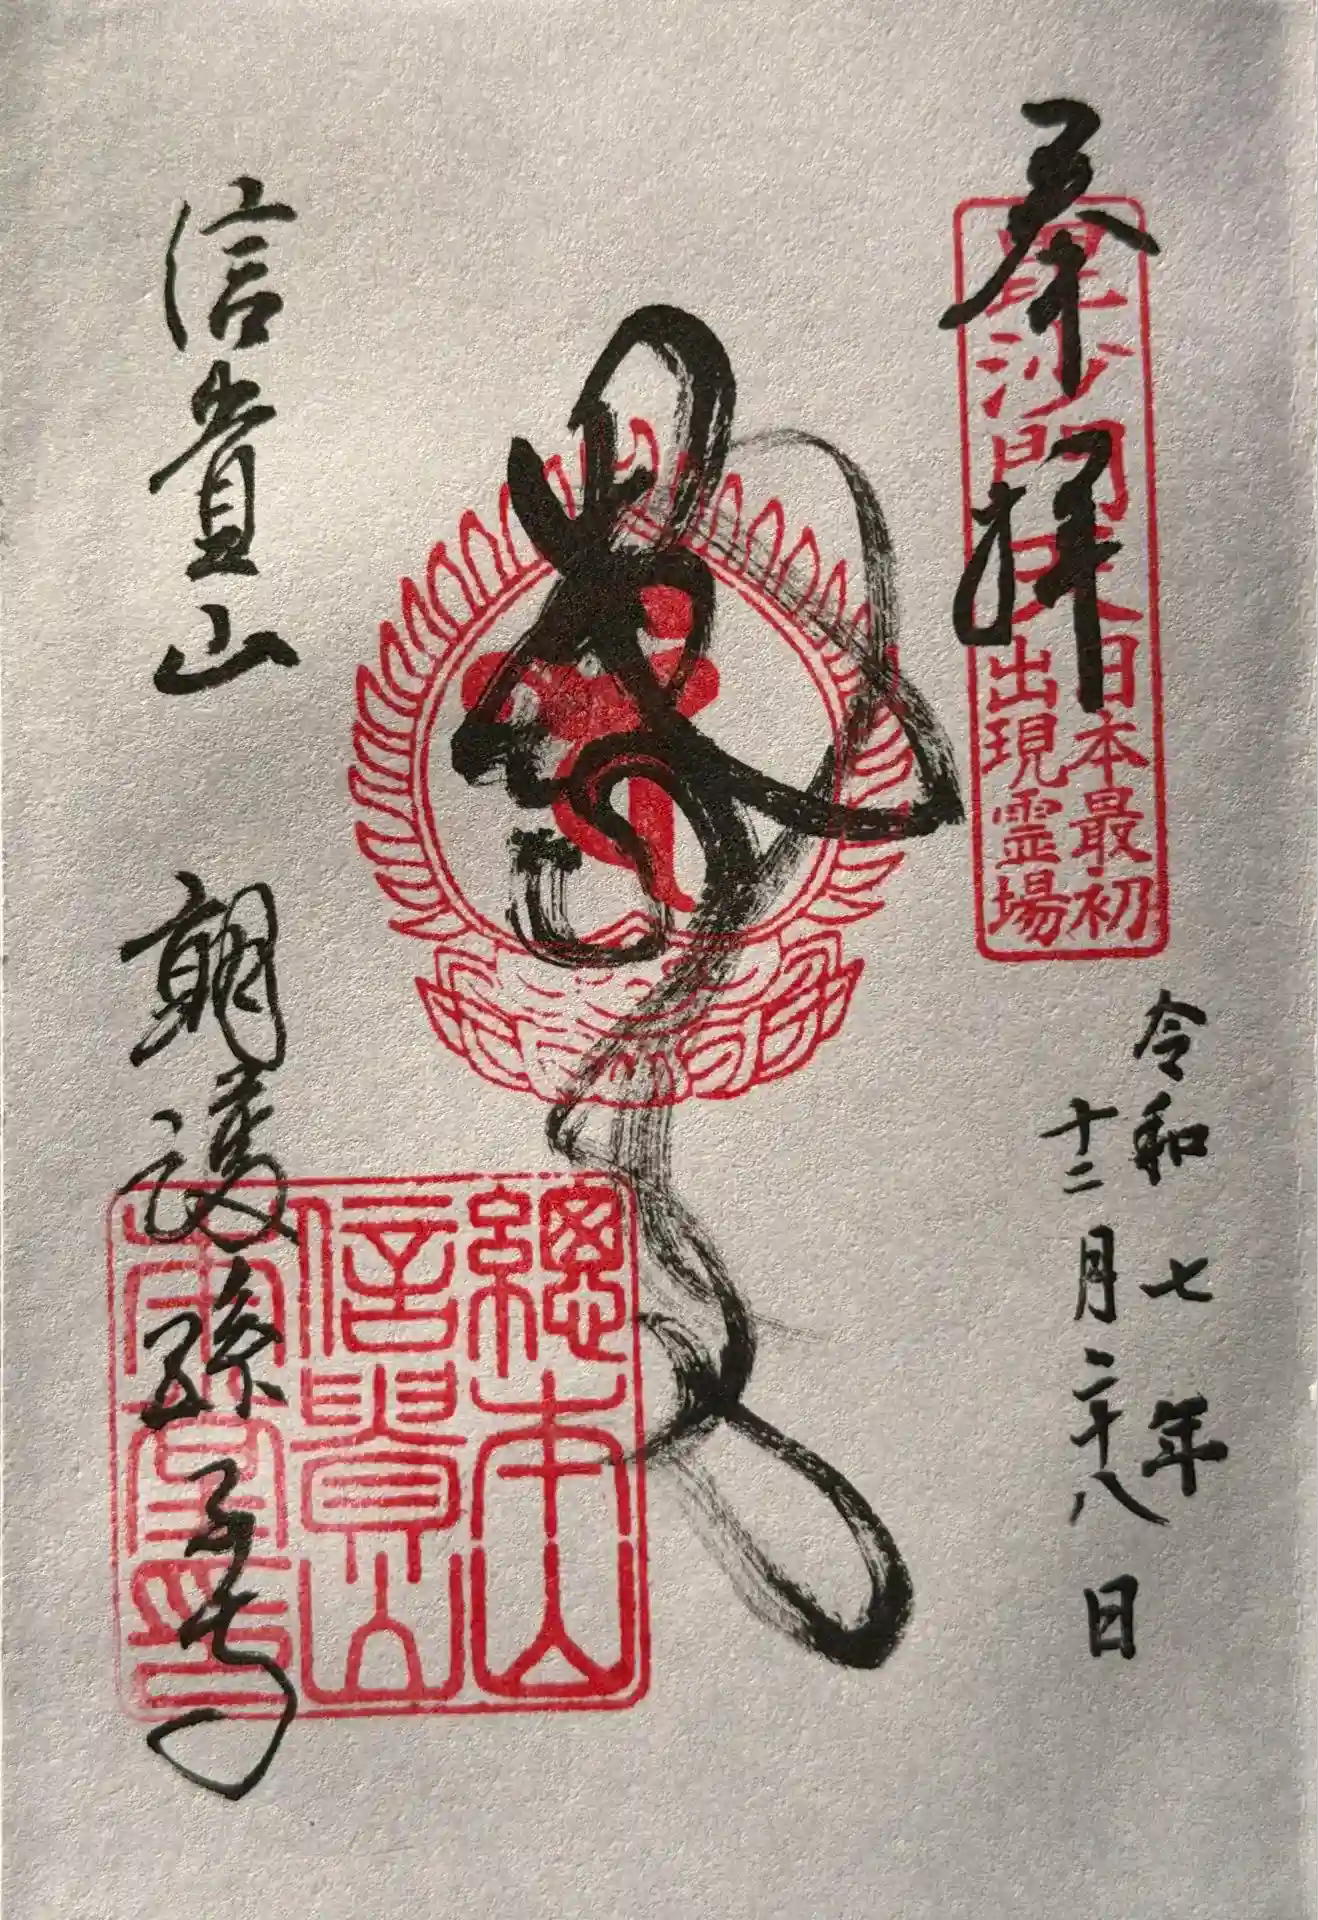 奉拝
毘沙門天
日本最初
出現霊場
令和七年
十二月二十八日
總本山
信貴山
信貴山 朝護孫子寺